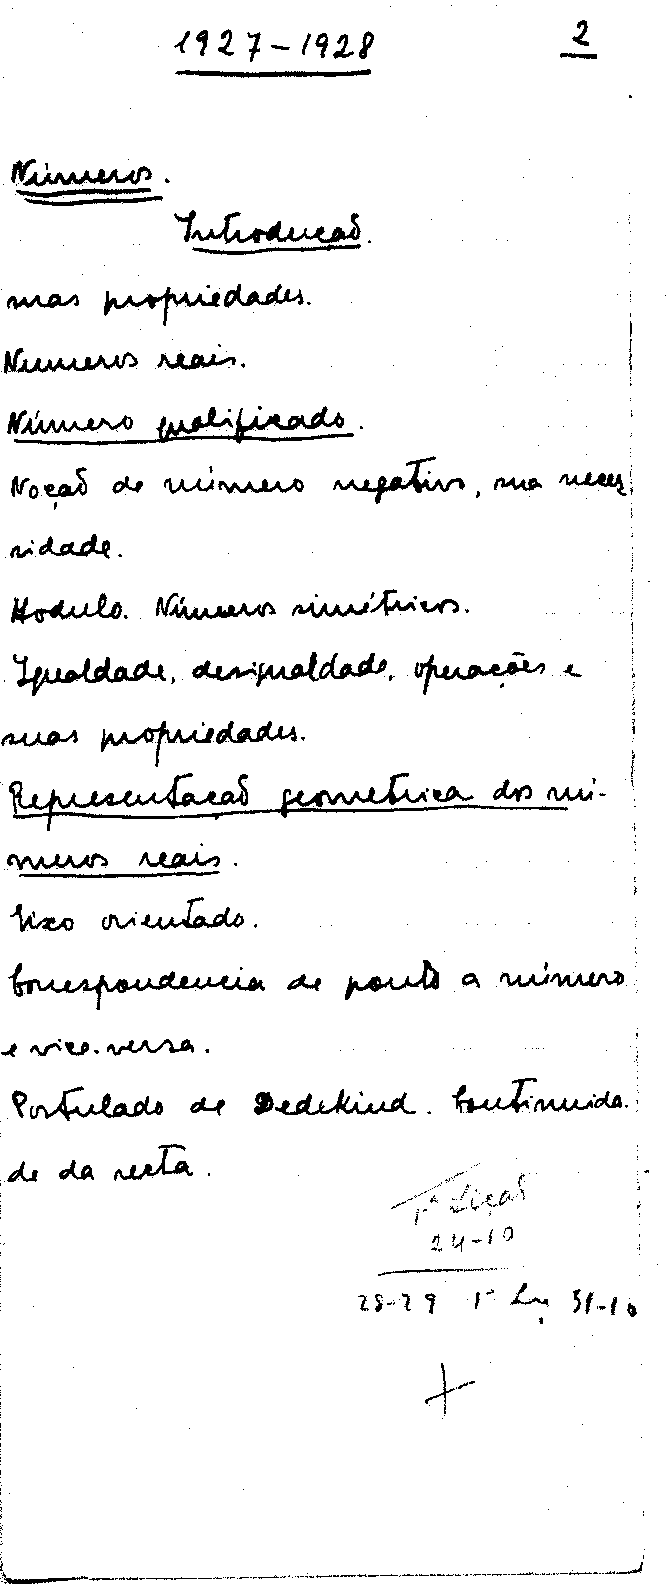 1927-1928 2
Números.
Introdução.
suas propriedades.
Numeros reais.
Número qualificado.
Noção de número negativo, sua neces
sidade.
Modulo. Números simétricos.
Igualdade, desigualdade, operações e
suas propriedades.
Representação geometrica dos nú-
meros reais.
Eixo orientado.
Correspondencia de ponto a número
e vice-versa.
Postulado de Dedekind. Continuida-
de da recta.
1ª Lição
24-10
28-29 1ª 31-10